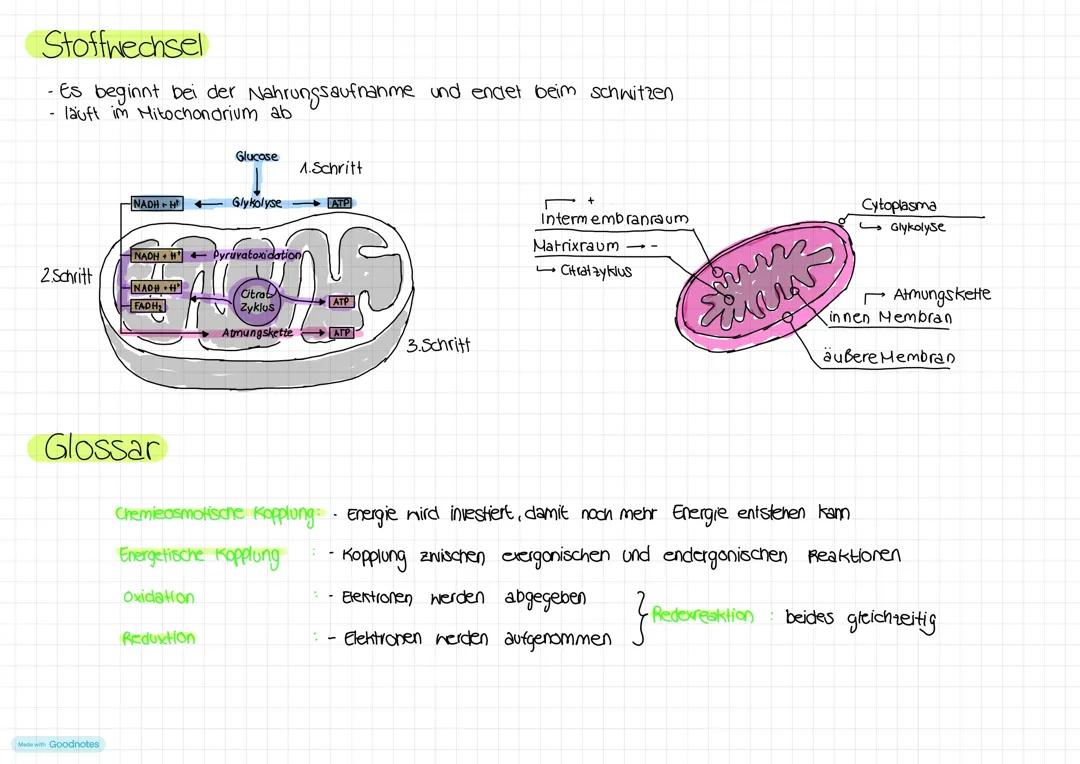 Stoffwechsel
- Es beginnt bei der Nahrungsaufnahme und endet beim schwitzen
- läuft im Mitochondrium ab
Glucose
1.Schritt
NADH + H⁺ ← Glykolyse → ATP
NADH + H⁺ ← Pyruvatoxidation
2.Schritt
NADH + H⁺
FADH₂
Citrat
Zyklus
ATP
Atmungskette → ATP
3.Schritt
+
Intermembranraum
Matrixraum → -
Citratzyklus
Cytoplasma
Glykolyse
Atmungskette
innen Membran
äußere Membran
Glossar
Chemieosmotische Kopplung: - Energie wird investiert, damit noch mehr Energie entstehen kann
Energetische Kopplung : - Kopplung zwischen exergonischen und endergonischen Reaktionen
Oxidation : - Elektronen werden abgegeben
Redoxreaktion : beides gleichzeitig
Reduktion : - Elektronen werden aufgenommen
Made with Goodnotes